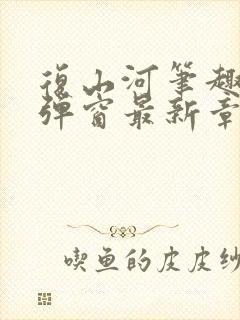 復山河筆趣
彈窗最新章
喫鱼的皮皮纱